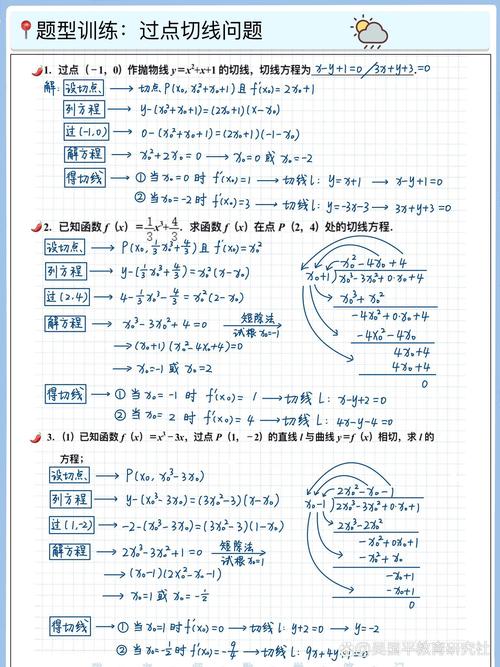 题型训练：过点切线问题
1. 过点（-1，0）作抛物线 y=x²+x+1 的切线，切线方程为 x-y+1=0 / 3x+y+3=0
解：设切点 → 切点 P(x₀, x₀²+x₀+1) 且 f'(x₀)=2x₀+1
列方程 → y-(x₀²+x₀+1)=(2x₀+1)(x-x₀)
过(-1,0) → 0-(x₀²+x₀+1)=(2x₀+1)(-1-x₀)
解方程 → x₀²+2x₀=0 → x₀=0 或 x₀=-2
得切线 → ① 当 x₀=0 时 f'(x₀)=1 → 切线 l: y=x+1 → x-y+1=0
② 当 x₀=-2 时 f'(x₀)=3 → 切线 l: y=-3x-3 → 3x+y+3=0
2. 已知函数 f（x）=1/3x³+4/3. 求函数 f（x）在点 P（2，4）处的切线方程.
设切点 → P(x₀, 1/3x₀³+4/3) 且 f'(x₀)=x₀²
列方程 → y-(1/3x₀³+4/3)=x₀²(x-x₀)
过(2,4) → 4-1/3x₀³-4/3=x₀²(2-x₀)
解方程 → x₀³-3x₀²+4=0 短除法 试根x₀=-1 →
→ (x₀+1)(x₀²-4x₀+4)=0
→ x₀=-1 或 x₀=2
x₀²-4x₀+4
x₀+1 x₀³-3x₀²+0·x₀+4
x₀³+x₀²
-4x₀²+0·x₀+4
-4x₀²-4x₀
4x₀+4
4x₀+4
0
得切线 → ① 当 x₀=-1 时 f'(x₀)=1 → 切线 l: x-y+2=0
② 当 x₀=2 时 f'(x₀)=4 → 切线 l: 4x-y-4=0
3.（1）已知函数 f（x）=x³-3x，过点 P（1，-2）的直线 l 与曲线 y=f（x）相切，求 l 的
方程；
设切点 → P(x₀, x₀³-3x₀)
列方程 → y-(x₀³-3x₀)=(3x₀²-3)(x-x₀)
过(1,-2) → -2-(x₀³-3x₀)=(3x₀²-3)(1-x₀)
解方程 → 2x₀³-3x₀²+1=0 短除法 试根x₀=1 →
→ (x₀-1)(2x₀²-x₀-1)
→ x₀=1 或 x₀=-1/2
2x₀²-x₀-1
x₀-1 2x₀³-3x₀²+0·x₀+1
2x₀³-2x₀²
-x₀²+0x₀+1
-x₀²+x₀
-x₀+1
-x₀+1
0
得切线 → ① 当 x₀=1 时 f'(x₀)=0 → 切线 l: y+2=0 → y=-2
② 当 x₀=-1/2 时 f'(x₀)=-9/4 → 切线 l: 9x+4y